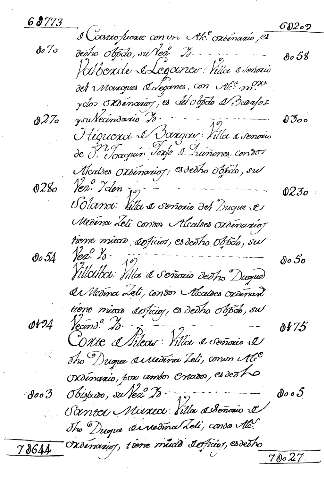 68773 68209
de Corte fuente con un Alc.e ordinario, es
8070 dedho Obpdo, su Vez.º Yo 8058
Valverde de Leganes: Villa de Señorio
del Marques de Leganes, con Alc.e m.or
y dos ordinarios, es del Obpdo de Badajoz
8270 y su Vecindario Yo 8300
Higuera de Bargas: Villa de Señorio
de D.n Joaquin de Quiñones con dos
Alcaldes ordinarios, es dedho Obpdo, su
8280 Vez.º Yden 8230
Solana: Villa de Señorio del Duque de
Medina Zeli con dos Alcaldes ordinarios
tiene mitad de oficios, es dedho Obpdo, su
8054 Vez.º Yo 8050
Villalba: Villa de Señorio dedho Duque
de Medina Zeli, con dos Alcaldes ordinari
tiene mitad de oficios, es dedho Obpdo, su
8194 Vecind.º Yo 8175
Corte de Peleas: Villa de Señorio de
dho Duque de Medina Zeli, con un Alc.e
ordinario, por ambos estados, es dedho
8003 Obispado, su Vez.º Yo 8005
Santa Marta: Villa de Señorio de
dho Duque de Medina Zeli, con dos Alc.s
78644 ordinarios, tiene mitad de oficios, es dedho 78027